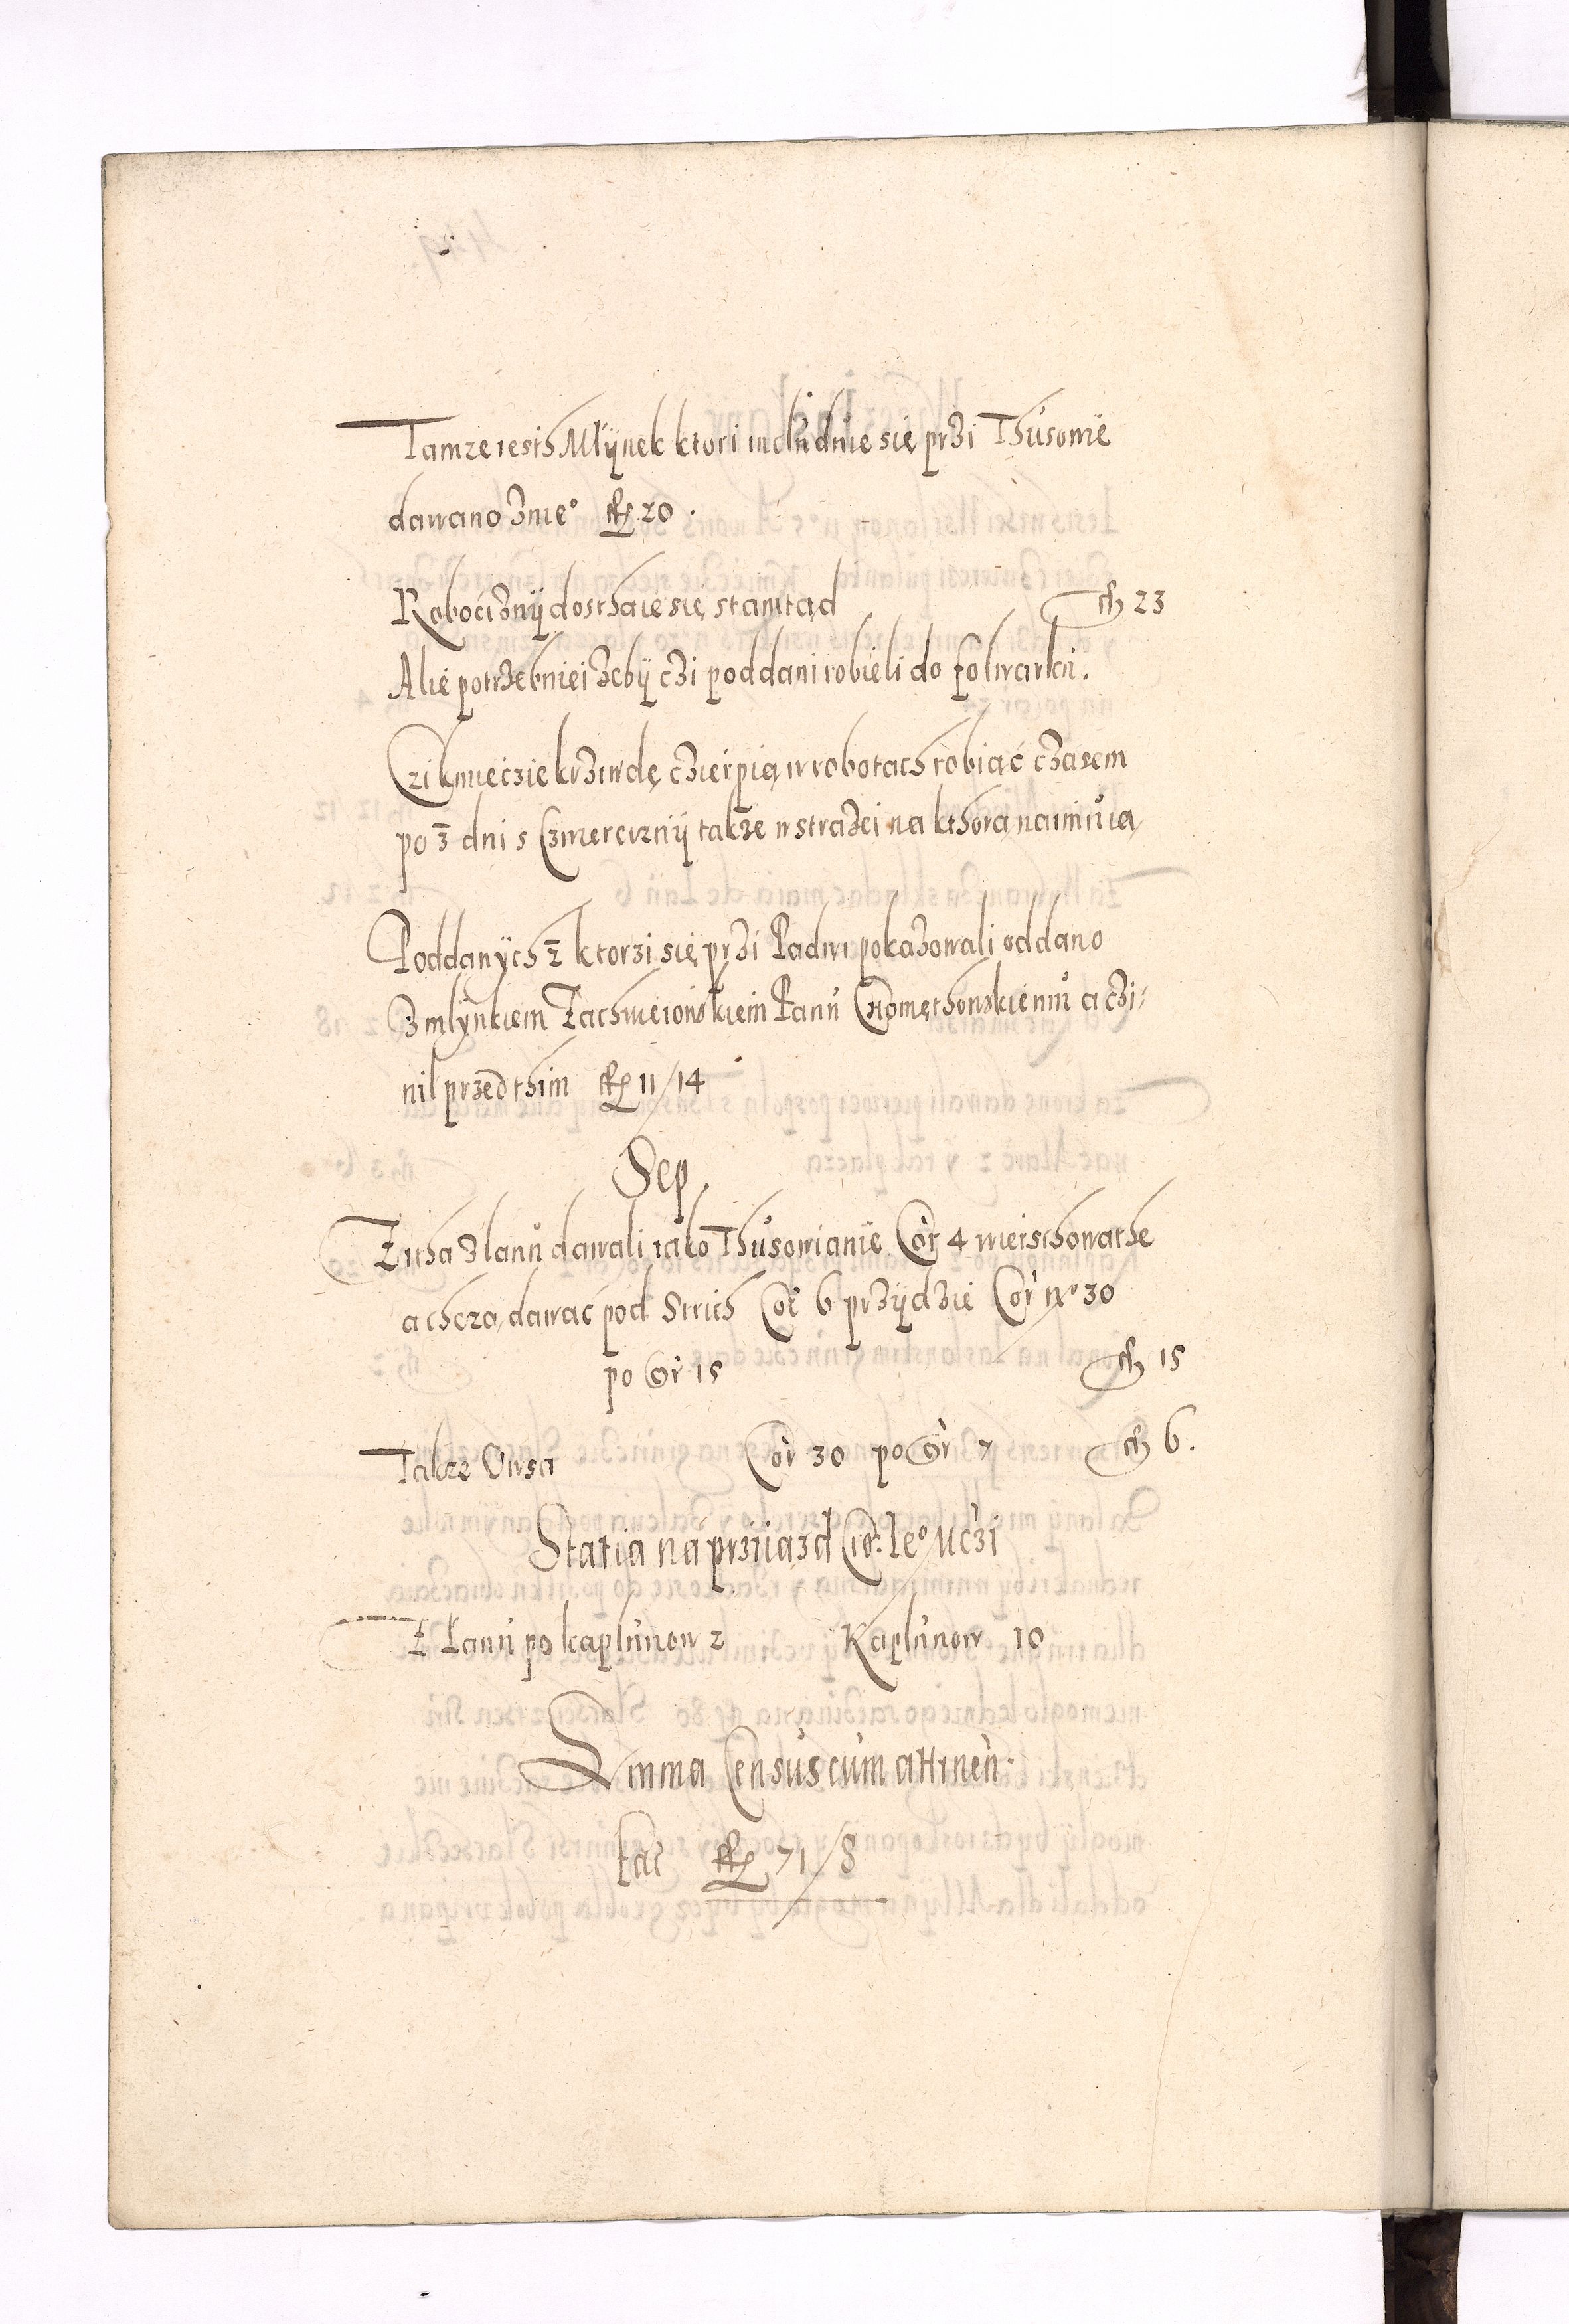 Tamze iesth Młÿnek ktori includuie się przi Thusowie
dawano zniego fl 20.
Roboćiznÿ dosthaie się stamtąd fl 23
Alie potrzebniei żebÿ czi poddani robieli do folwarku.
Czi kmieczie krziwdę czierpią w robotach robiąć czasem
po 3 dni s Czwercizny także w strażei na kthorą naimuią
Poddanÿch 2 ktorzi się przi Padwi pokazowali oddano
z młÿnkiem Zachwieiowskiem Panu Czomethowskiemu a czi=
nil przedthim fl 11/14
Sep
Zitha z lanu dawali iako Thusowianie Cor 4 wierschowathe
a chczą dawać pod Strich Cor 6 przÿdzie Cor no 30
po Gr 15 fl 15
Takze Owsa Cor 30 po Gr 7 fl 6.
Statia na prziiazd Kro: Ieo Mczi
Z Łanu po kaplunow 2 Kaplunow 10
Summa Census cum attinen:
facit fl 71/8